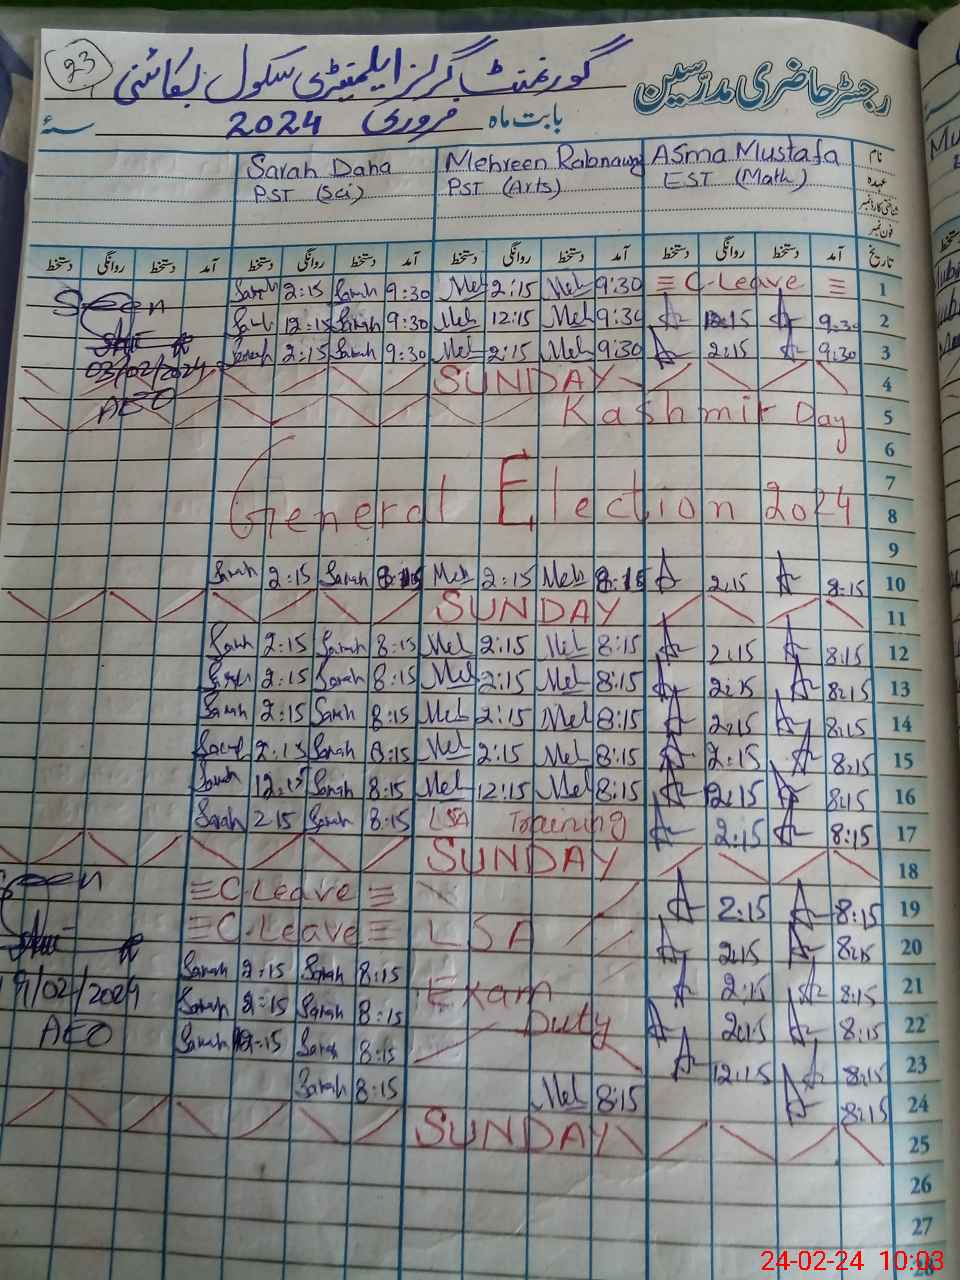 23
رجسٹر حاضری مدرسین
گورنمنٹ گرلز ایلیمنٹری سکول
بابت ماہ فروری 2024 سنہ
نام Asma Mustafa Mehreen Rabnawaz Sarah Daha
عہدہ EST (Math) PST (Arts) PST (Sci)
شناختی کارڈ نمبر
فون نمبر
تاریخ آمد دستخط روانگی دستخط آمد دستخط روانگی دستخط آمد دستخط روانگی دستخط آمد دستخط روانگی دستخط
Sarah 2:15 Sarah 9:30 Meh 2:15 Meh 9:30 C-Leave 1
Seen
Sarah 12:15 Sarah 9:30 Meh 12:15 Meh 9:30 A 12:15 A 9:30 2
Sarah 2:15 Sarah 9:30 Meh 2:15 Meh 9:30 A 2:15 A 9:30 3
03/02/2024
SUNDAY 4
AEO
Kashmir Day 5
6
7
General Election 2024 8
9
Sarah 2:15 Sarah 8:15 Meh 2:15 Meh 8:15 A 2:15 A 8:15 10
SUNDAY 11
Sarah 2:15 Sarah 8:15 Meh 2:15 Meh 8:15 A 2:15 A 8:15 12
Sarah 2:15 Sarah 8:15 Meh 2:15 Meh 8:15 A 2:15 A 8:15 13
Sarah 2:15 Sarah 8:15 Meh 2:15 Meh 8:15 A 2:15 A 8:15 14
Sarah 2:15 Sarah 8:15 Meh 2:15 Meh 8:15 A 2:15 A 8:15 15
Sarah 12:15 Sarah 8:15 Meh 12:15 Meh 8:15 A 12:15 A 8:15 16
Sarah 2:15 Sarah 8:15 LSA Training A 2:15 A 8:15 17
SUNDAY 18
Seen
C-Leave A 2:15 A 8:15 19
C-Leave LSA A 2:15 A 8:15 20
Sarah 2:15 Sarah 8:15 Exam A 2:15 A 8:15 21
/02/2024
Sarah 2:15 Sarah 8:15 Duty A 2:15 A 8:15 22
AEO
Sarah 12:15 Sarah 8:15 A 12:15 A 8:15 23
Sarah 8:15 Meh 8:15 A 8:15 24
SUNDAY 25
26
27
28
24-02-24 10:03